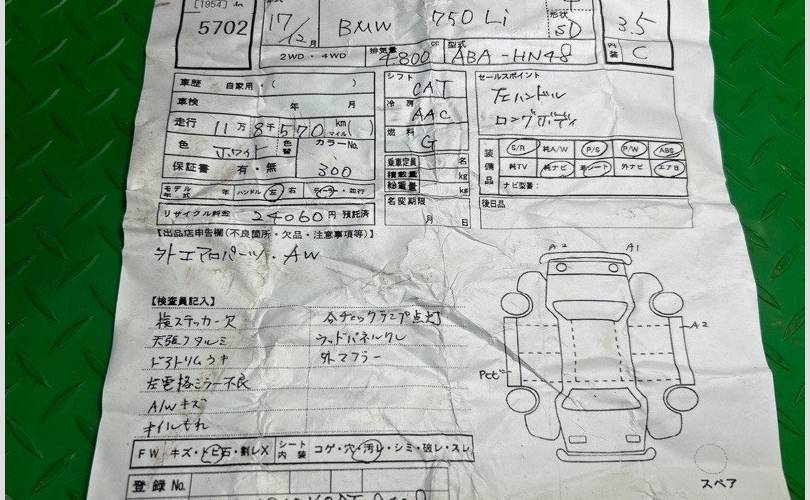 [1954]
5702
17/12月
BMW 750Li
形状
5D
3.5
内装 C
2WD・4WD
排気量 4800 cc
型式 ABA-HN48
車歴 自家用・( )
車検 年 月
走行 11万8千570 km マイル( )
色 ホワイト 色替 カラーNo. 300
保証書 有・無
モデル年式 年 ハンドル 左 右 ディーラー・並行
リサイクル料金 24060円 預託済
シフト CAT
冷房 AAC
燃料 G
乗車定員 名
積載量 kg
総重量 kg
名変期限 月 日
セールスポイント
左ハンドル
ロングボディ
装備品
S/R 純A/W P/S P/W ABS
純TV 純ナビ 革シート 外ナビ エアB
ナビ型番:
後日品
【出品店申告欄(不良箇所・欠品・注意事項等)】
外エアロパーツ・AW
【検査員記入】
検ステッカー欠
天張りタルミ
ドアトリムウキ
左電格ミラー不良
A/Wキズ
オイルもれ
各チェックランプ点灯
ウッドパネルワレ
外マフラー
FW キズ・トビ石・割レX
シート内装 コゲ・穴・汚レ・シミ・破レ・スレ
登録No.
A2 A1
A2
スペア